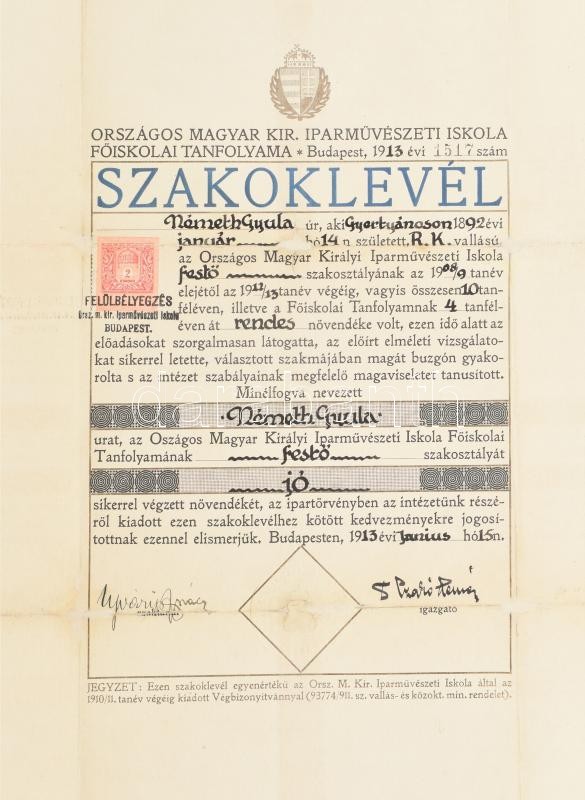 ORSZÁGOS MAGYAR KIR. IPARMŰVÉSZETI ISKOLA
FŐISKOLAI TANFOLYAMA * Budapest, 1913 évi 1517 szám
SZAKOKLEVÉL
Németh Gyula úr, aki Gyertyánoson 1892 évi
január hó 14 n született, R.K. vallású,
az Országos Magyar Királyi Iparművészeti Iskola
festő szakosztályának az 1908/9 tanév
elejétől az 1912/13 tanév végéig, vagyis összesen 10 tan-
féléven, illetve a Főiskolai Tanfolyamnak 4 tanfél-
éven át rendes növendéke volt, ezen idő alatt az
előadásokat szorgalmasan látogatta, az előírt elméleti vizsgálato-
kat sikerrel letette, választott szakmájában magát buzgón gyako-
rolta s az intézet szabályainak megfelelő magaviseletet tanusított.
2
FELÜLBÉLYEGZÉS
Orsz. m. kir. Iparművészeti Iskola
BUDAPEST.
Minélfogva nevezett
Németh Gyula
urat, az Oszágos Magyar Királyi Iparművészeti Iskola Főiskolai
Tanfolyamának festő szakosztályát
jó
sikerrel végzett növendékét, az ipartörvényben az intézetünk részé-
ről kiadott ezen szakoklevélhez kötött kedvezményekre jogosí-
tottnak ezennel elismerjük. Budapesten, 1913 évi Junius hó 15 n.
igazgató
JEGYZET: Ezen szakoklevél egyenértékű az Orsz. M. Kir. Iparművészeti Iskola által az
1910/11. tanév végéig kiadott Végbizonyítvánnyal (93774/911. sz. vallás- és közokt. min. rendelet).
darabanth